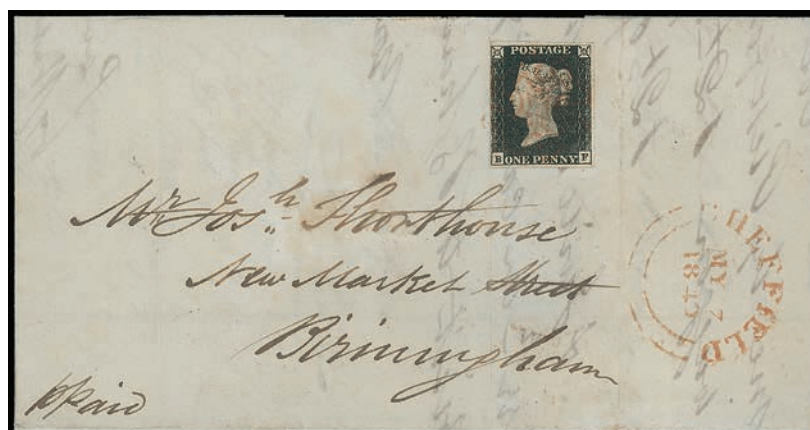 POSTAGE
B ONE PENNY F
Mr. Josh. Shorthouse
New Market Street
Birmingham
ppaid
SHEFFIELD
MY 7
1840